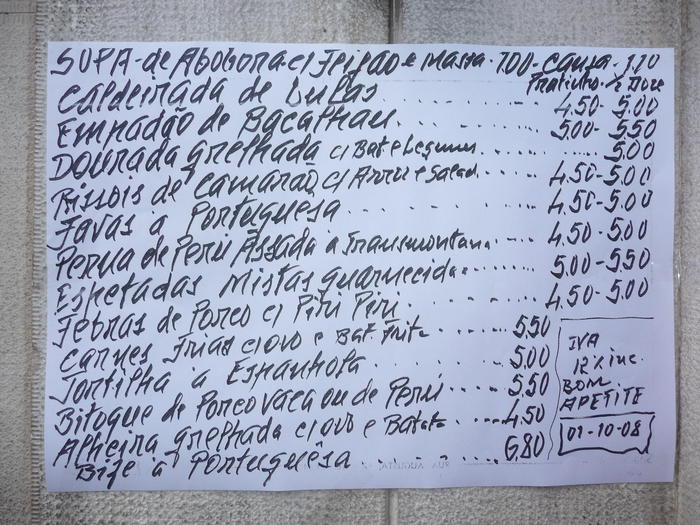 SOPA de Abobora c/ Feijão e massa. 1.00 - canja. 1.20
Pratinho. ½ Dose
Caldeirada de Lulas ........ 4.50 - 5.00
Empadão de Bacalhau. ....... 5.00 - 5.50
Dourada grelhada c/ Bat e Legum. ....... 5.00
Rissois de camarão c/ Arroz e Salad. ..... 4.50 - 5.00
Favas a Portuguesa ........ 4.50 - 5.00
Perna de Peru Assada a Transmontana ..... 4.50 - 5.00
Espetadas Mistas guarnecidas ...... 5.00 - 5.50
Febras de Porco c/ Piri Piri ........ 4.50 - 5.00
Carnes Frias c/ ovo e Bat. Frita ..... 5.50
Tortilha à Espanhola ...... 5.00
Bitoque de Porco vaca ou de Peru ..... 5.50
Alheira grelhada c/ ovo e Batata ..... 4.50
Bife à Portuguêsa ....... 6.80
IVA
12% inc.
BOM
APETITE
01-10-08